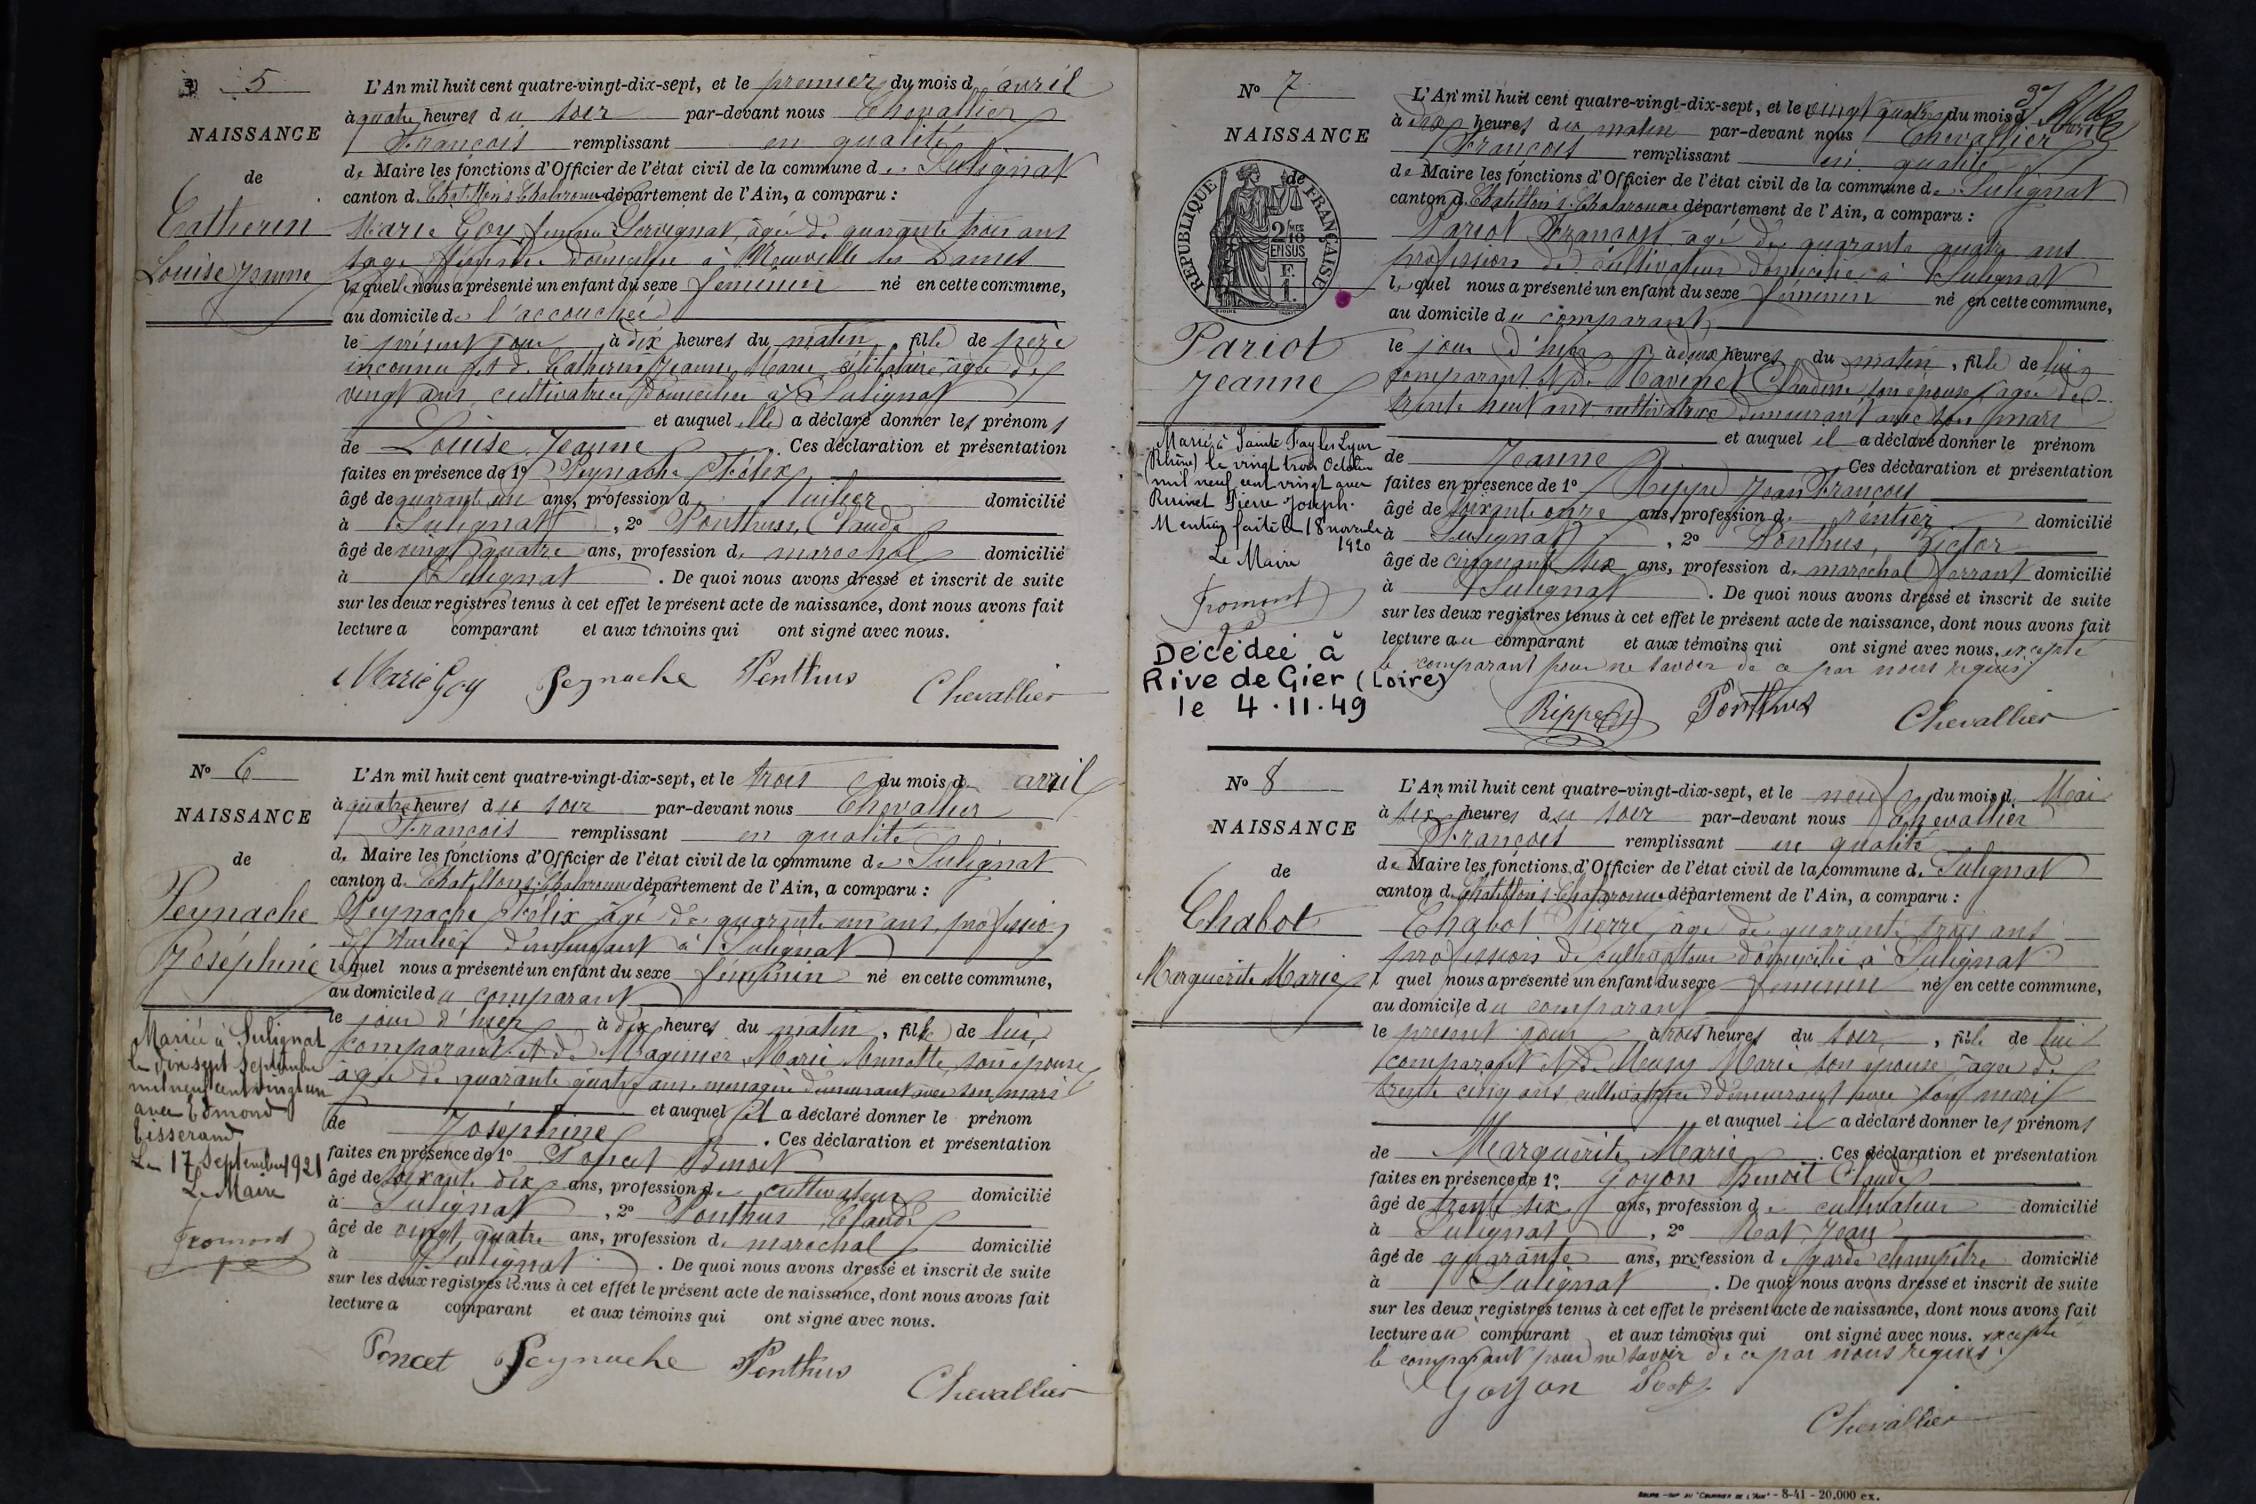 5
NAISSANCE
de
Catherin
Louise Jeanne
L'An mil huit cent quatre-vingt-dix-sept, et le premier du mois d avril
à quatre heures du soir par-devant nous Chevallier
François remplissant en qualité
de Maire les fonctions d'Officier de l'état civil de la commune de Sulignat
canton de Chatillon s Chalaronne département de l'Ain, a comparu :
Marie Goy femme Servignat, âgée de quarante trois ans
sage femme domiciliée à Neuville les Dames
laquelle nous a présenté un enfant du sexe féminin né en cette commune,
au domicile de l'accouchée
le présent jour à dix heures du matin, fille de père
inconnu et de Catherin Jeanne Marie célibataire âgée de
vingt ans, cultivatrice domiciliée à Sulignat
et auquel elle a déclaré donner les prénoms
de Louise Jeanne . Ces déclaration et présentation
faites en présence de 1º Peynache Félix
âgé de quarante un ans, profession de tuilier domicilié
à Sulignat , 2º Ponthus, Claude
âgé de vingt quatre ans, profession de marechal domicilié
à Sulignat . De quoi nous avons dressé et inscrit de suite
sur les deux registres tenus à cet effet le présent acte de naissance, dont nous avons fait
lecture a comparant et aux témoins qui ont signé avec nous.
Marie Goy Peynache Ponthus Chevallier
Nº 6
NAISSANCE
de
Peynache
Joséphine
Mariée à Sulignat
le dix sept Septembre
mil neuf cent vingt un
avec Edmond
Tisserand
Le 17 Septembre 1921
Le Maire
Fromont
L'An mil huit cent quatre-vingt-dix-sept, et le trois du mois d avril
à quatre heures du soir par-devant nous Chevallier
François remplissant en qualité
de Maire les fonctions d'Officier de l'état civil de la commune de Sulignat
canton de Chatillon s Chalaronne département de l'Ain, a comparu :
Peynache Félix âgé de quarante un ans, profession
de tuilier demeurant à Sulignat
lequel nous a présenté un enfant du sexe féminin né en cette commune,
au domicile du comparant
le jour d'hier à dix heures du matin, fille de lui
comparant et de Maginier Marie Annette, son épouse
âgée de quarante quatre ans ménagère demeurant avec son mari
et auquel il a déclaré donner le prénom
de Joséphine . Ces déclaration et présentation
faites en présence de 1º Poncet Benoit
âgé de soixante dix ans, profession de cultivateur domicilié
à Sulignat , 2º Ponthus Claude
âgé de vingt quatre ans, profession de marechal domicilié
à Sulignat . De quoi nous avons dressé et inscrit de suite
sur les deux registres tenus à cet effet le présent acte de naissance, dont nous avons fait
lecture a comparant et aux témoins qui ont signé avec nous.
Poncet Peynache Ponthus Chevallier
Nº 7
NAISSANCE
de
REPUBLIQUE FRANÇAISE
2/10MES
EN SUS
F.
1.
Pariot
Jeanne
Mariée à Sainte Foy les Lyon
(Rhône) le vingt trois Octobre
mil neuf cent vingt avec
Pierre Joseph.
Mention faite le 18 novembre
1920
Le Maire
Fromont
Décédée à
Rive de Gier (Loire)
le 4.11.49
L'An mil huit cent quatre-vingt-dix-sept, et le vingt quatre du mois d Avril
à heures du matin par-devant nous Chevallier
François remplissant en qualité
de Maire les fonctions d'Officier de l'état civil de la commune de Sulignat
canton de Chatillon s. Chalaronne département de l'Ain, a comparu :
Pariot François âgé de quarante quatre ans
profession de cultivateur domicilié à Sulignat
lequel nous a présenté un enfant du sexe féminin né en cette commune,
au domicile du comparant
le jour d'hier à deux heures du matin, fille de lui
comparant et de Claudine son épouse âgée de
trente neuf ans cultivatrice demeurant avec son mari
et auquel il a déclaré donner le prénom
de Jeanne Ces déclaration et présentation
faites en présence de 1º Rippe Jean François
âgé de soixante onze ans, profession de rentier domicilié
à Sulignat , 2º Ponthus, Victor
âgé de cinquante six ans, profession de marechal ferrant domicilié
à Sulignat . De quoi nous avons dressé et inscrit de suite
sur les deux registres tenus à cet effet le présent acte de naissance, dont nous avons fait
lecture au comparant et aux témoins qui ont signé avec nous, excepté
le comparant pour ne savoir de ce par nous requis
Rippe Ponthus Chevallier
Nº 8
NAISSANCE
de
Chabot
Marguerite Marie
L'An mil huit cent quatre-vingt-dix-sept, et le neuf du mois de Mai
à six heures du soir par-devant nous Chevallier
François remplissant en qualité
de Maire les fonctions d'Officier de l'état civil de la commune de Sulignat
canton de Chatillon s. Chalaronne département de l'Ain, a comparu :
Chabot Pierre, âgé de quarante trois ans
profession de cultivateur domicilié à Sulignat
l quel nous a présenté un enfant du sexe féminin né en cette commune,
au domicile du comparant
le présent jour à trois heures du soir, fille de lui
comparant et de Marie son épouse âgée de
trente cinq ans cultivatrice demeurant avec son mari
et auquel il a déclaré donner les prénoms
de Marguerite Marie . Ces déclaration et présentation
faites en présence de 1º, Goyon Benoit Claude
âgé de trente six ans, profession de cultivateur domicilié
à Sulignat , 2º Jean
âgé de quarante ans, profession de garde champêtre domicilié
à Sulignat . De quoi nous avons dressé et inscrit de suite
sur les deux registres tenus à cet effet le présent acte de naissance, dont nous avons fait
lecture au comparant et aux témoins qui ont signé avec nous. excepté
le comparant pour ne savoir de ce par nous requis.
Goyon Chevallier
"COURRIER DE L'AIN" - 8-41 - 20.000 ex.